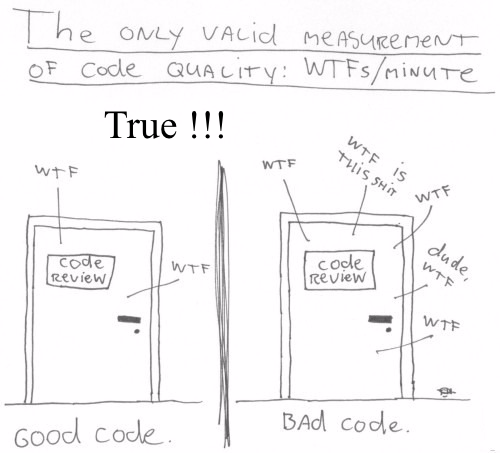 The ONLY VALID MEASUREMENT
OF Code QUALITY: WTFs/MINUTE
True !!!
WTF
Code
REVIEW
WTF
GOOD Code.
WTF
WTF is
THIS SHIT
WTF
Code
REVIEW
dude,
WTF
WTF
BAd code.